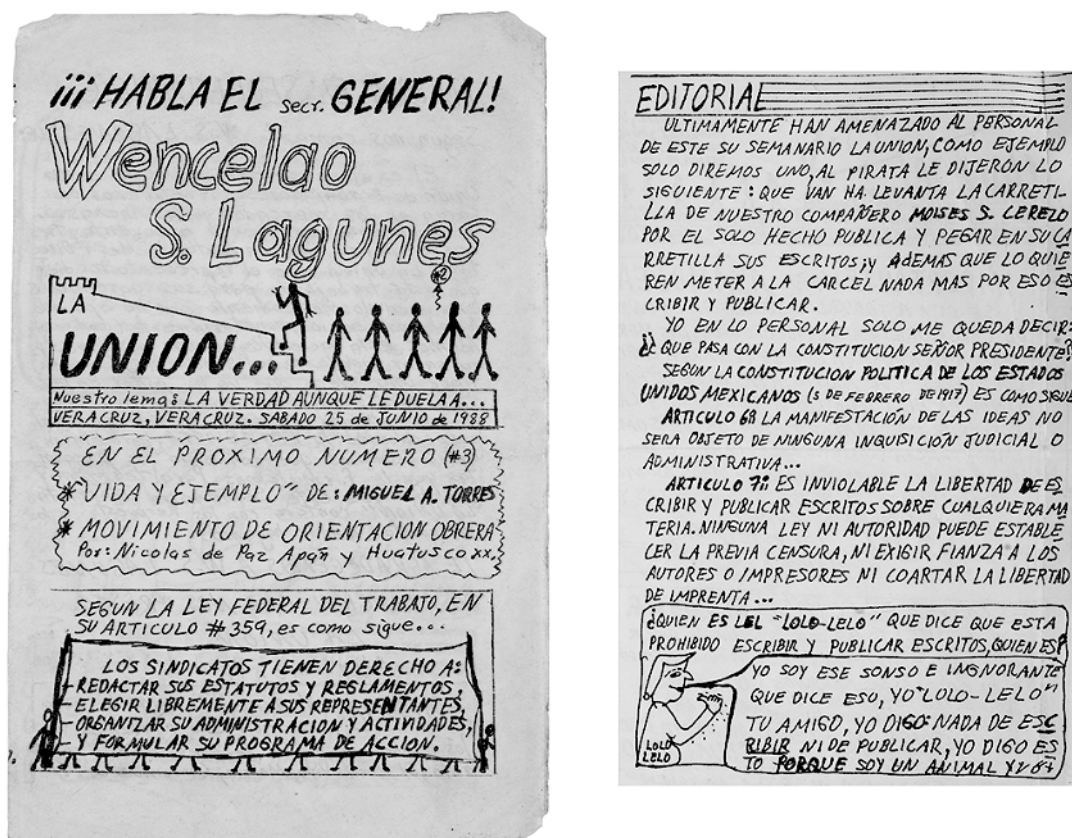 ¡¡¡HABLA EL Secr. GENERAL!
Wencelao
S. Lagunes
#2
LA
UNION...
Nuestro lema: LA VERDAD AUNQUE LE DUELA A...
VERACRUZ, VERACRUZ. SABADO 25 de JUNIO de 1988
EN EL PROXIMO NUMERO (#3)
* "VIDA Y EJEMPLO" DE: MIGUEL A. TORRES
* MOVIMIENTO DE ORIENTACION OBRERA
Por: Nicolas de Paz Apañ y Huatusco xx.
SEGUN LA LEY FEDERAL DEL TRABAJO, EN
SU ARTICULO #359, es como sigue...
LOS SINDICATOS TIENEN DERECHO A:
- REDACTAR SUS ESTATUTOS Y REGLAMENTOS,
- ELEGIR LIBREMENTE A SUS REPRESENTANTES,
- ORGANIZAR SU ADMINISTRACION Y ACTIVIDADES,
- Y FORMULAR SU PROGRAMA DE ACCION.
EDITORIAL
ULTIMAMENTE HAN AMENAZADO AL PERSONAL
DE ESTE SU SEMANARIO LA UNION, COMO EJEMPLO
SOLO DIREMOS UNO, AL PIRATA LE DIJERON LO
SIGUIENTE: QUE VAN HA LEVANTA LA CARRETI-
LLA DE NUESTRO COMPAÑERO MOISES S. CEREZO
POR EL SOLO HECHO PUBLICA Y PEGAR EN SU CA
RRETILLA SUS ESCRITOS; Y ADEMAS QUE LO QUIE
REN METER A LA CARCEL NADA MAS POR ESO ES
CRIBIR Y PUBLICAR.
YO EN LO PERSONAL SOLO ME QUEDA DECIR:
¿¿ QUE PASA CON LA CONSTITUCION SEÑOR PRESIDENTE?
SEGUN LA CONSTITUCION POLITICA DE LOS ESTADOS
UNIDOS MEXICANOS (5 DE FEBRERO DE 1917) ES COMO SIGUE
ARTICULO 6º LA MANIFESTACIÓN DE LAS IDEAS NO
SERA OBJETO DE NINGUNA INQUISICIÓN JUDICIAL O
ADMINISTRATIVA...
ARTICULO 7º: ES INVIOLABLE LA LIBERTAD DE ES
CRIBIR Y PUBLICAR ESCRITOS SOBRE CUALQUIERA MA
TERIA. NINGUNA LEY NI AUTORIDAD PUEDE ESTABLE
CER LA PREVIA CENSURA, NI EXIGIR FIANZA A LOS
AUTORES O IMPRESORES NI COARTAR LA LIBERTAD
DE IMPRENTA...
¿QUIEN ES LEL "LOLO-LELO" QUE DICE QUE ESTA
PROHIBIDO ESCRIBIR Y PUBLICAR ESCRITOS, QUIEN ES?
YO SOY ESE SONSO E INGNORANTE
QUE DICE ESO, YO "LOLO-LELO"
TU AMIGO, YO DIGO: NADA DE ESC
RIBIR NI DE PUBLICAR, YO DIGO ES
TO PORQUE SOY UN ANIMAL
LOLO
LELO